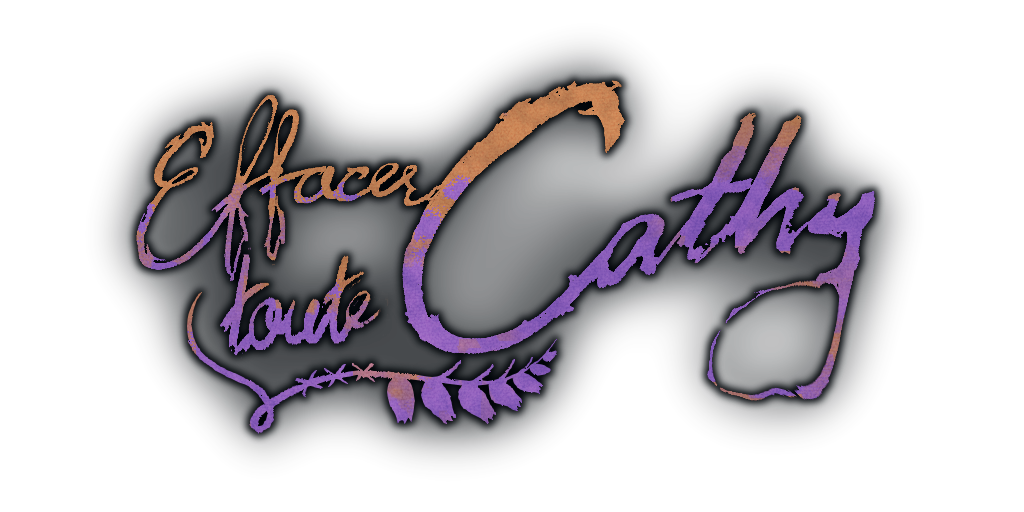 Effacer
toute Cathy